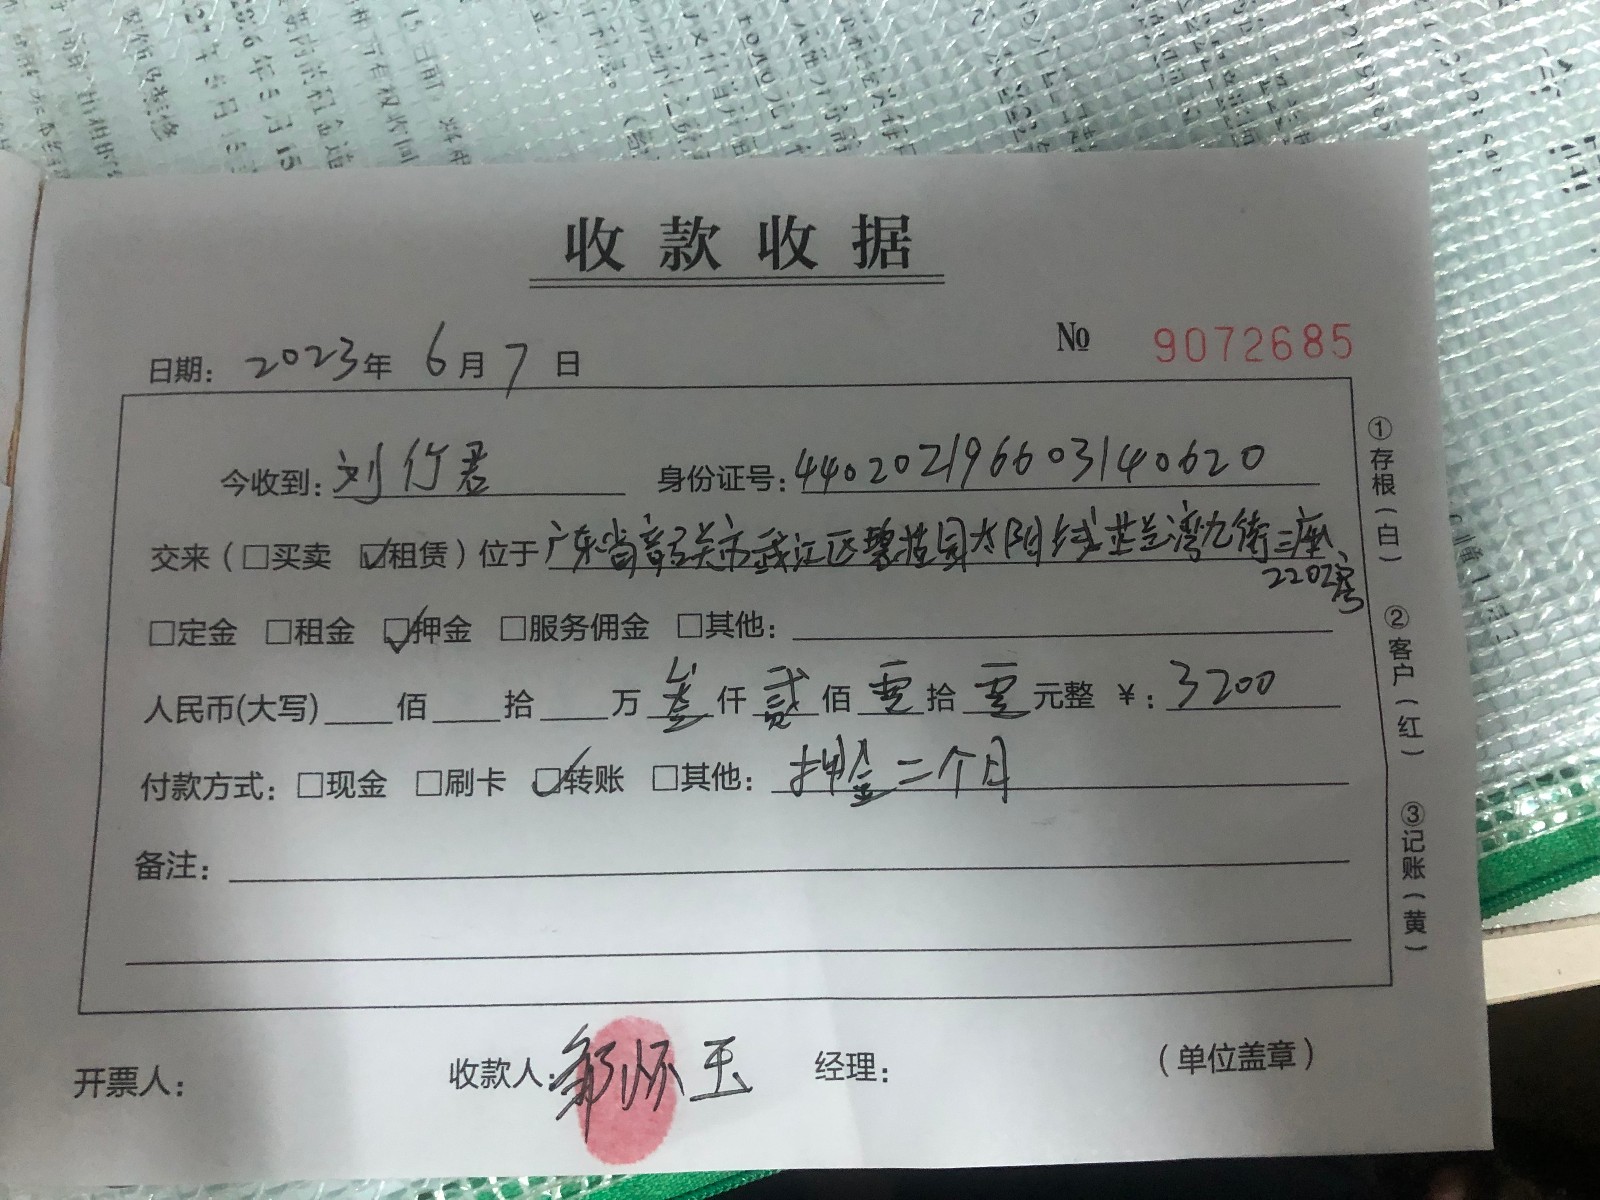 收款收据
日期: 2023年 6月 7日 № 9072685
今收到: 刘行君 身份证号: 440202196603140620
交来(□买卖 ☑租赁)位于广东省韶关市武江区碧桂园太阳城芷兰湾九街三座
2202房
□定金 □租金 ☑押金 □服务佣金 □其他:
人民币(大写)____佰____拾____万叁仟贰佰零拾零元整 ¥: 3200
付款方式: □现金 □刷卡 ☑转账 □其他: 押金二个月
备注:
开票人: 收款人: 邹怀玉 经理: (单位盖章)
①存根(白) ②客户(红) ③记账(黄)